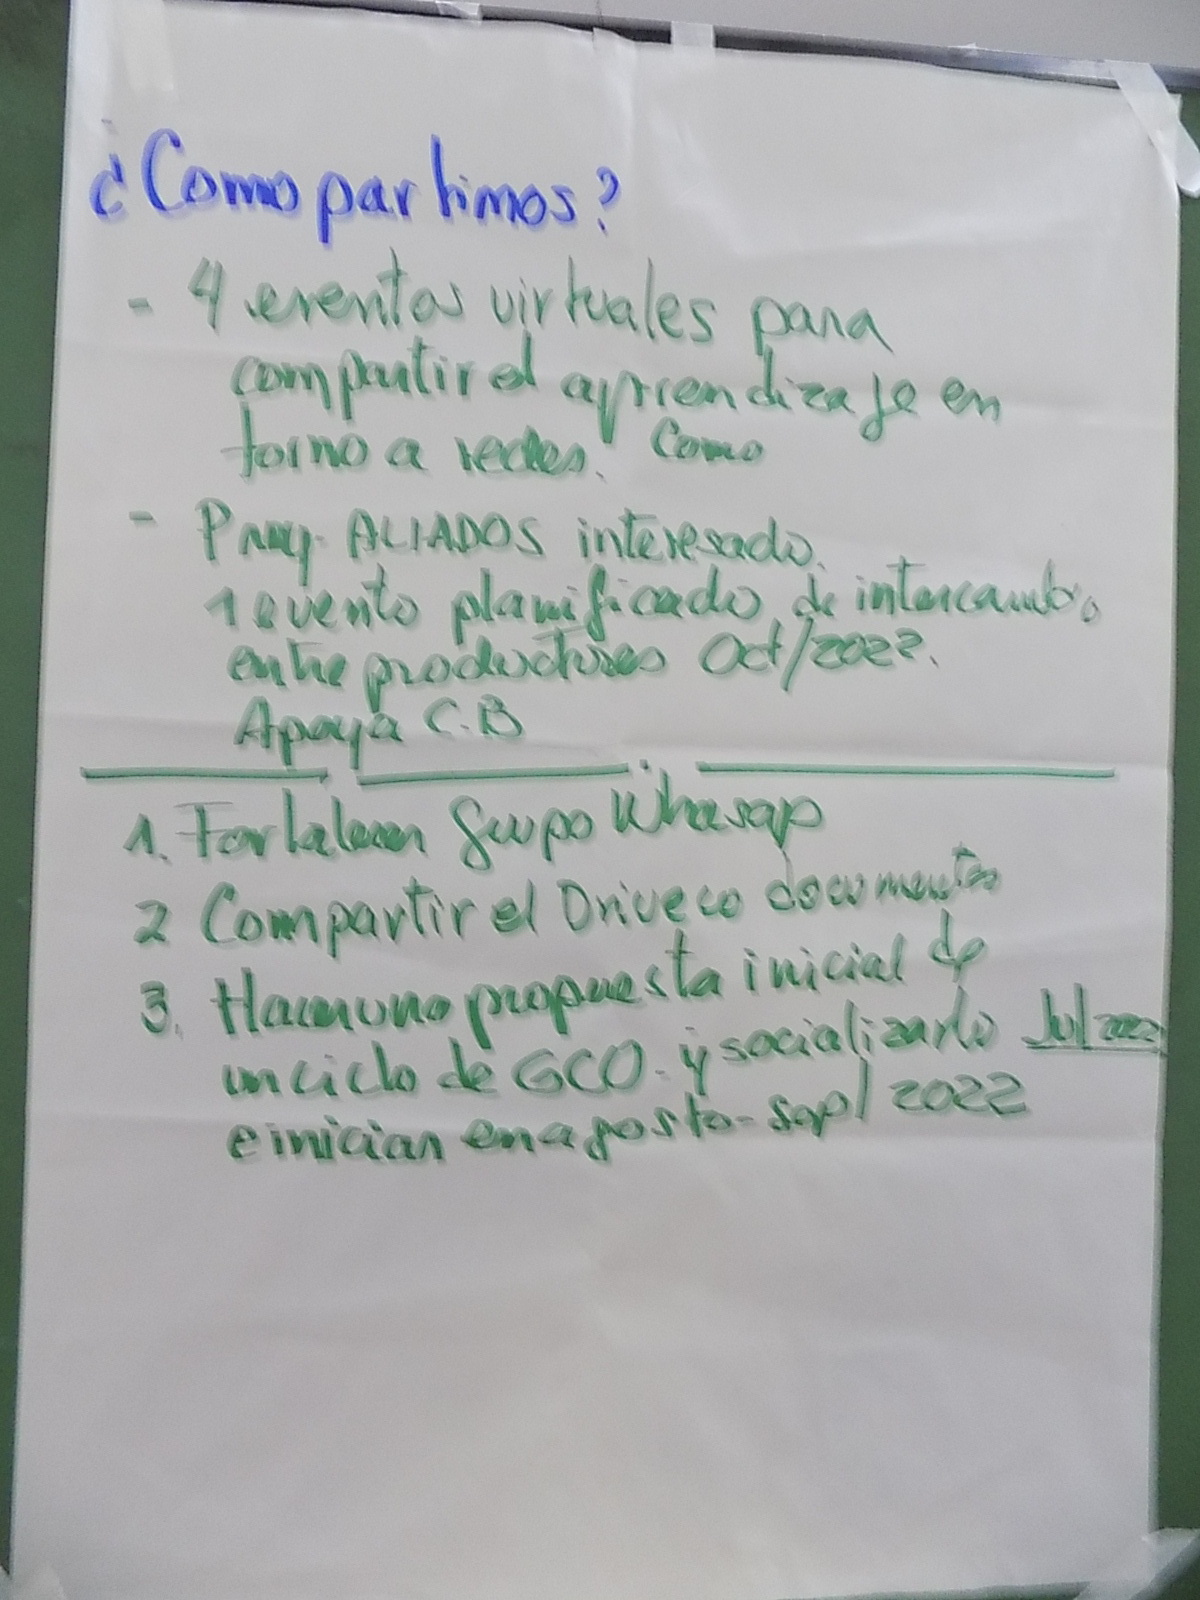 ¿Como partimos?
- 4 eventos virtuales para
compartir el aprendizaje en
torno a redes. Como
- Proy. ALIADOS interesado.
1 evento planificado de intercambio
entre productores Oct/2022.
Apoya C.B
1. Fortalecer grupo Whasap
2 Compartir el Drive co documentos
3. Hacer una propuesta inicial de
un ciclo de GCO. y socializarlo Jul 2022
e iniciar en agosto-sept 2022